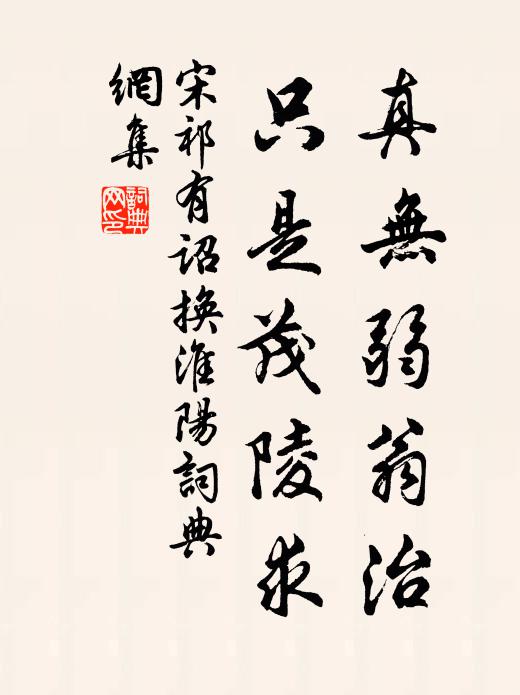 真無弱翁治
只是茂陵求
宋祁有詔換淮陽詞典
網集
詞典
网印